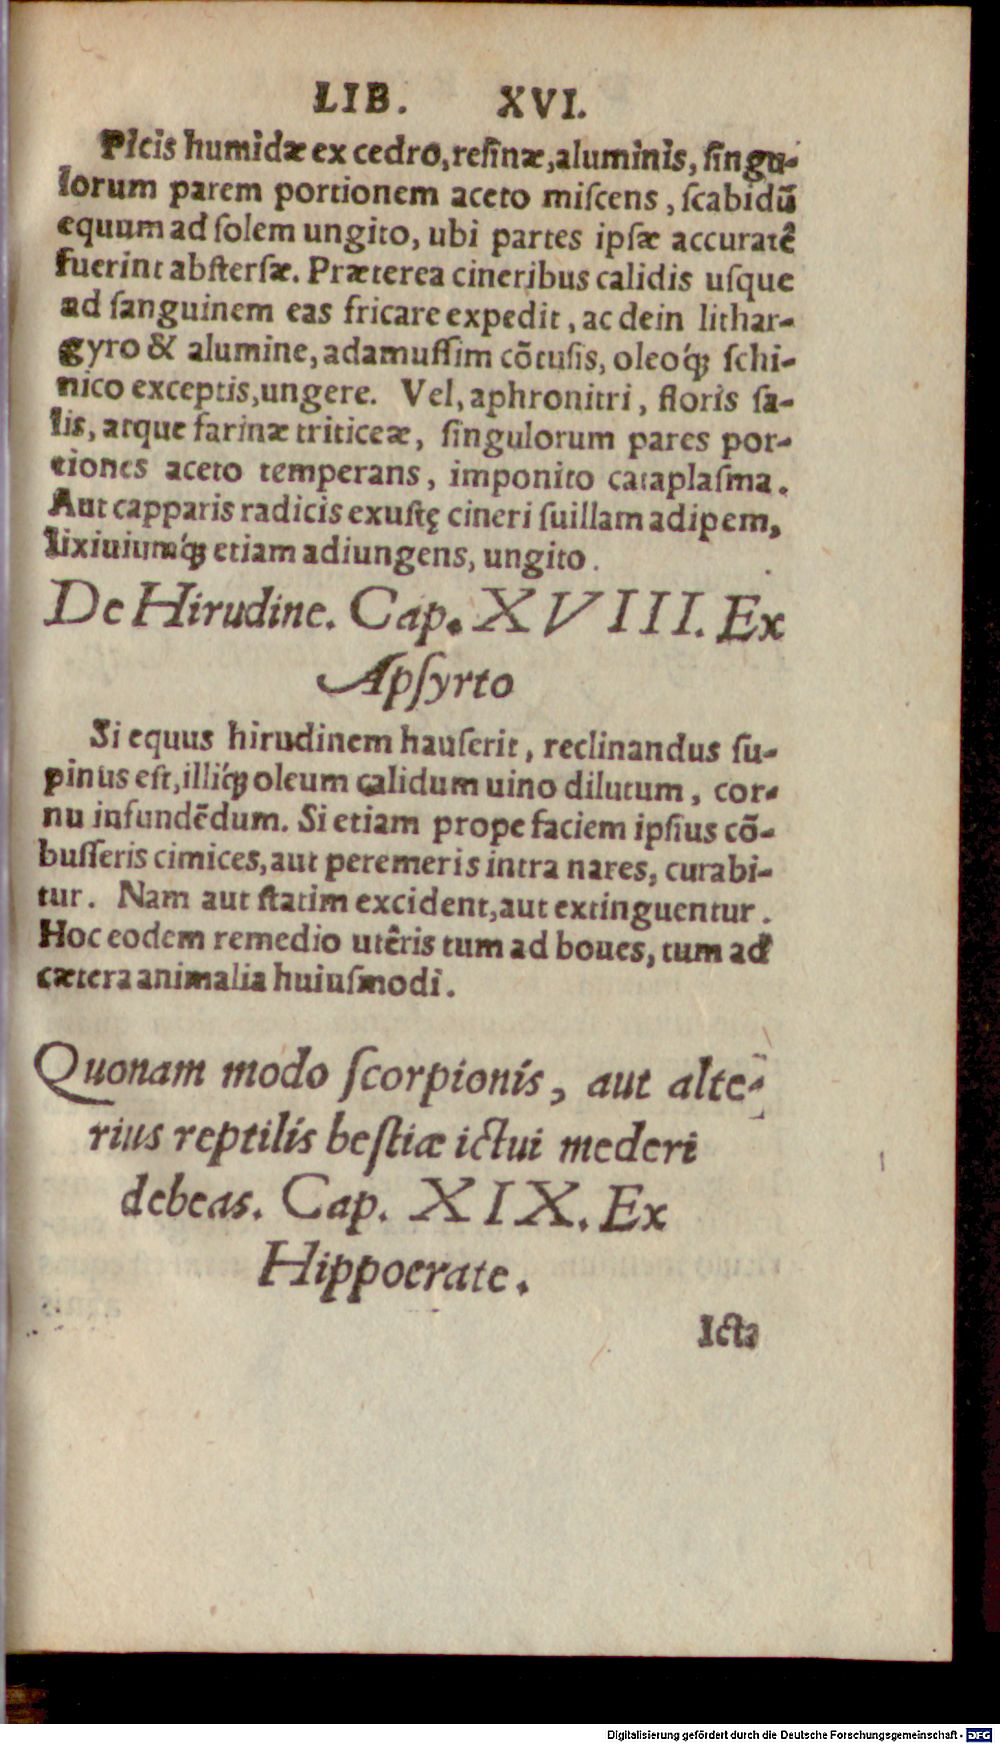 LIB. XVI.
Picis humidæ ex cedro, resinæ, aluminis, singu-
lorum parem portionem aceto miscens, scabidũ
equum ad solem ungito, ubi partes ipsæ accuratê
fuerint abstersæ. Præterea cineribus calidis usque
ad sanguinem eas fricare expedit, ac dein lithar-
gyro & alumine, adamussim cõtusis, oleoq́ꝫ schi-
nico exceptis, ungere. Vel, aphronitri, floris sa-
lis, atque farinæ triticeæ, singulorum pares por-
tiones aceto temperans, imponito cataplasma.
Aut capparis radicis exustę cineri suillam adipem,
lixiuiumq́ꝫ etiam adiungens, ungito.
De Hirudine. Cap. XVIII. Ex
Apsyrto
Si equus hirudinem hauserit, reclinandus su-
pinus est, illiq́ꝫ oleum calidum uino dilutum, cor-
nu infundẽdum. Si etiam prope faciem ipsius cõ-
busseris cimices, aut peremeris intra nares, curabi-
tur. Nam aut statim excident, aut extinguentur.
Hoc eodem remedio utêris tum ad boues, tum ad
cætera animalia huiusmodi.
Quonam modo scorpionis, aut alte-
rius reptilis bestiæ ictui mederi
debeas. Cap. XIX. Ex
Hippocrate.
Icta
Digitalisierung gefördert durch die Deutsche Forschungsgemeinschaft - DFG